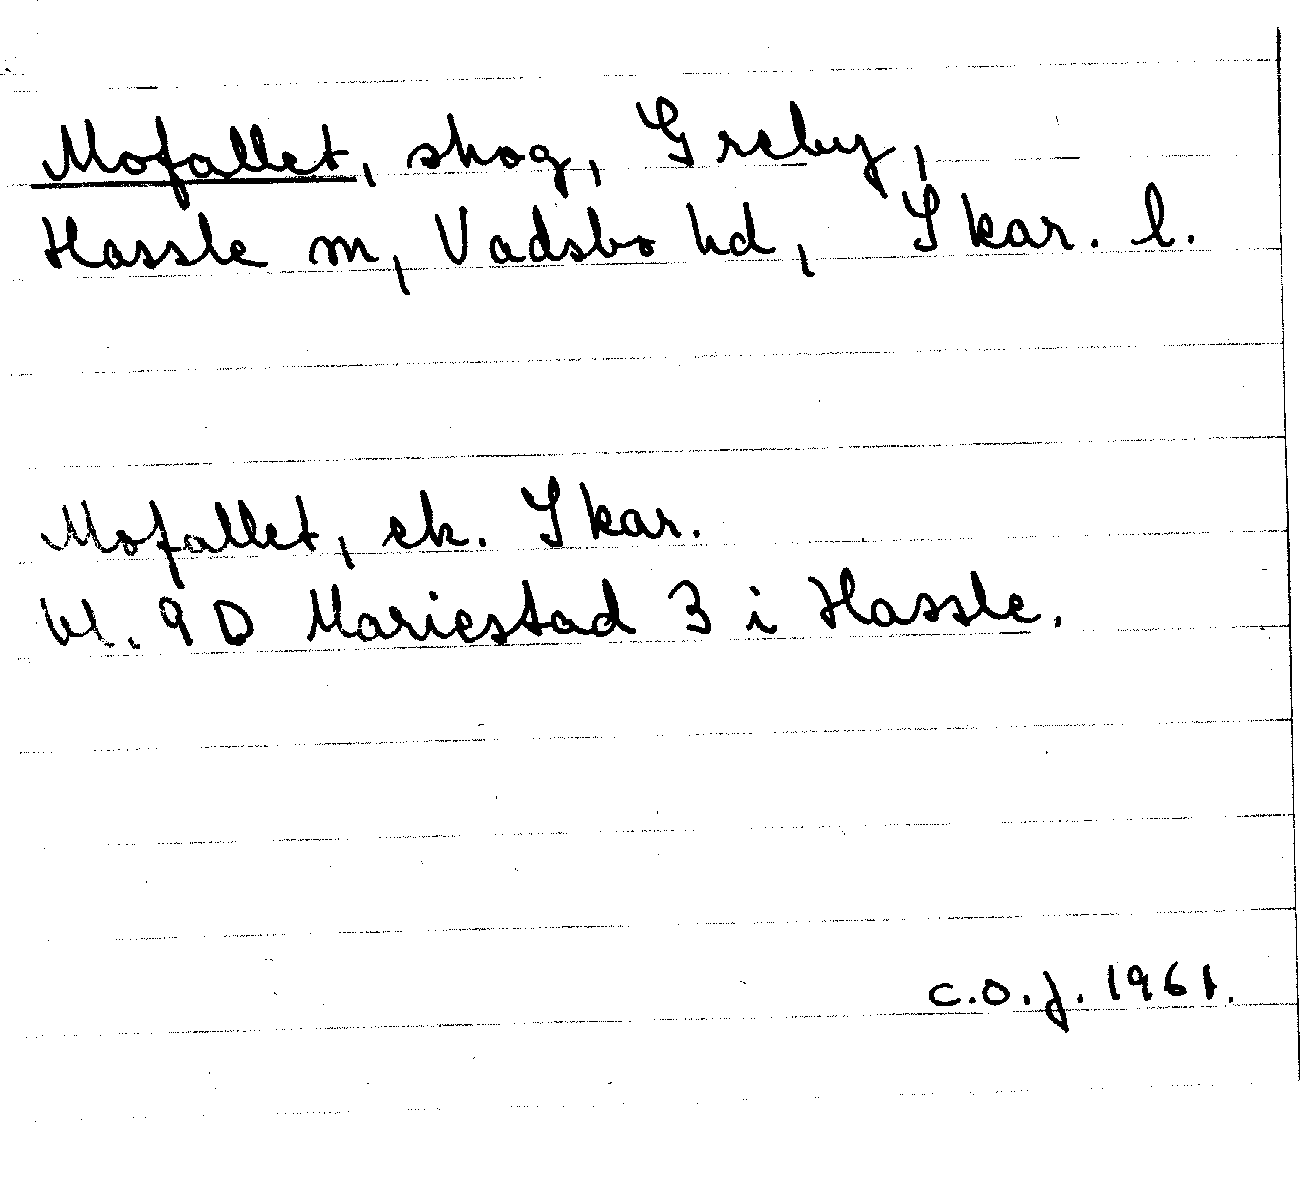 Mofallet, skog, Greby,
Hassle sn, Vadsbo hd, Skar. l.
Mofallet, ek. Skar.
bl. 9 D Mariestad 3 i Hassle.
C.O.J. 1961.